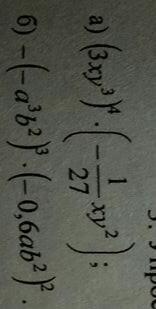 а) (3xy³)⁴ · (−1/27 xy²);
б) −(−a³b²)³ · (−0,6ab²)².